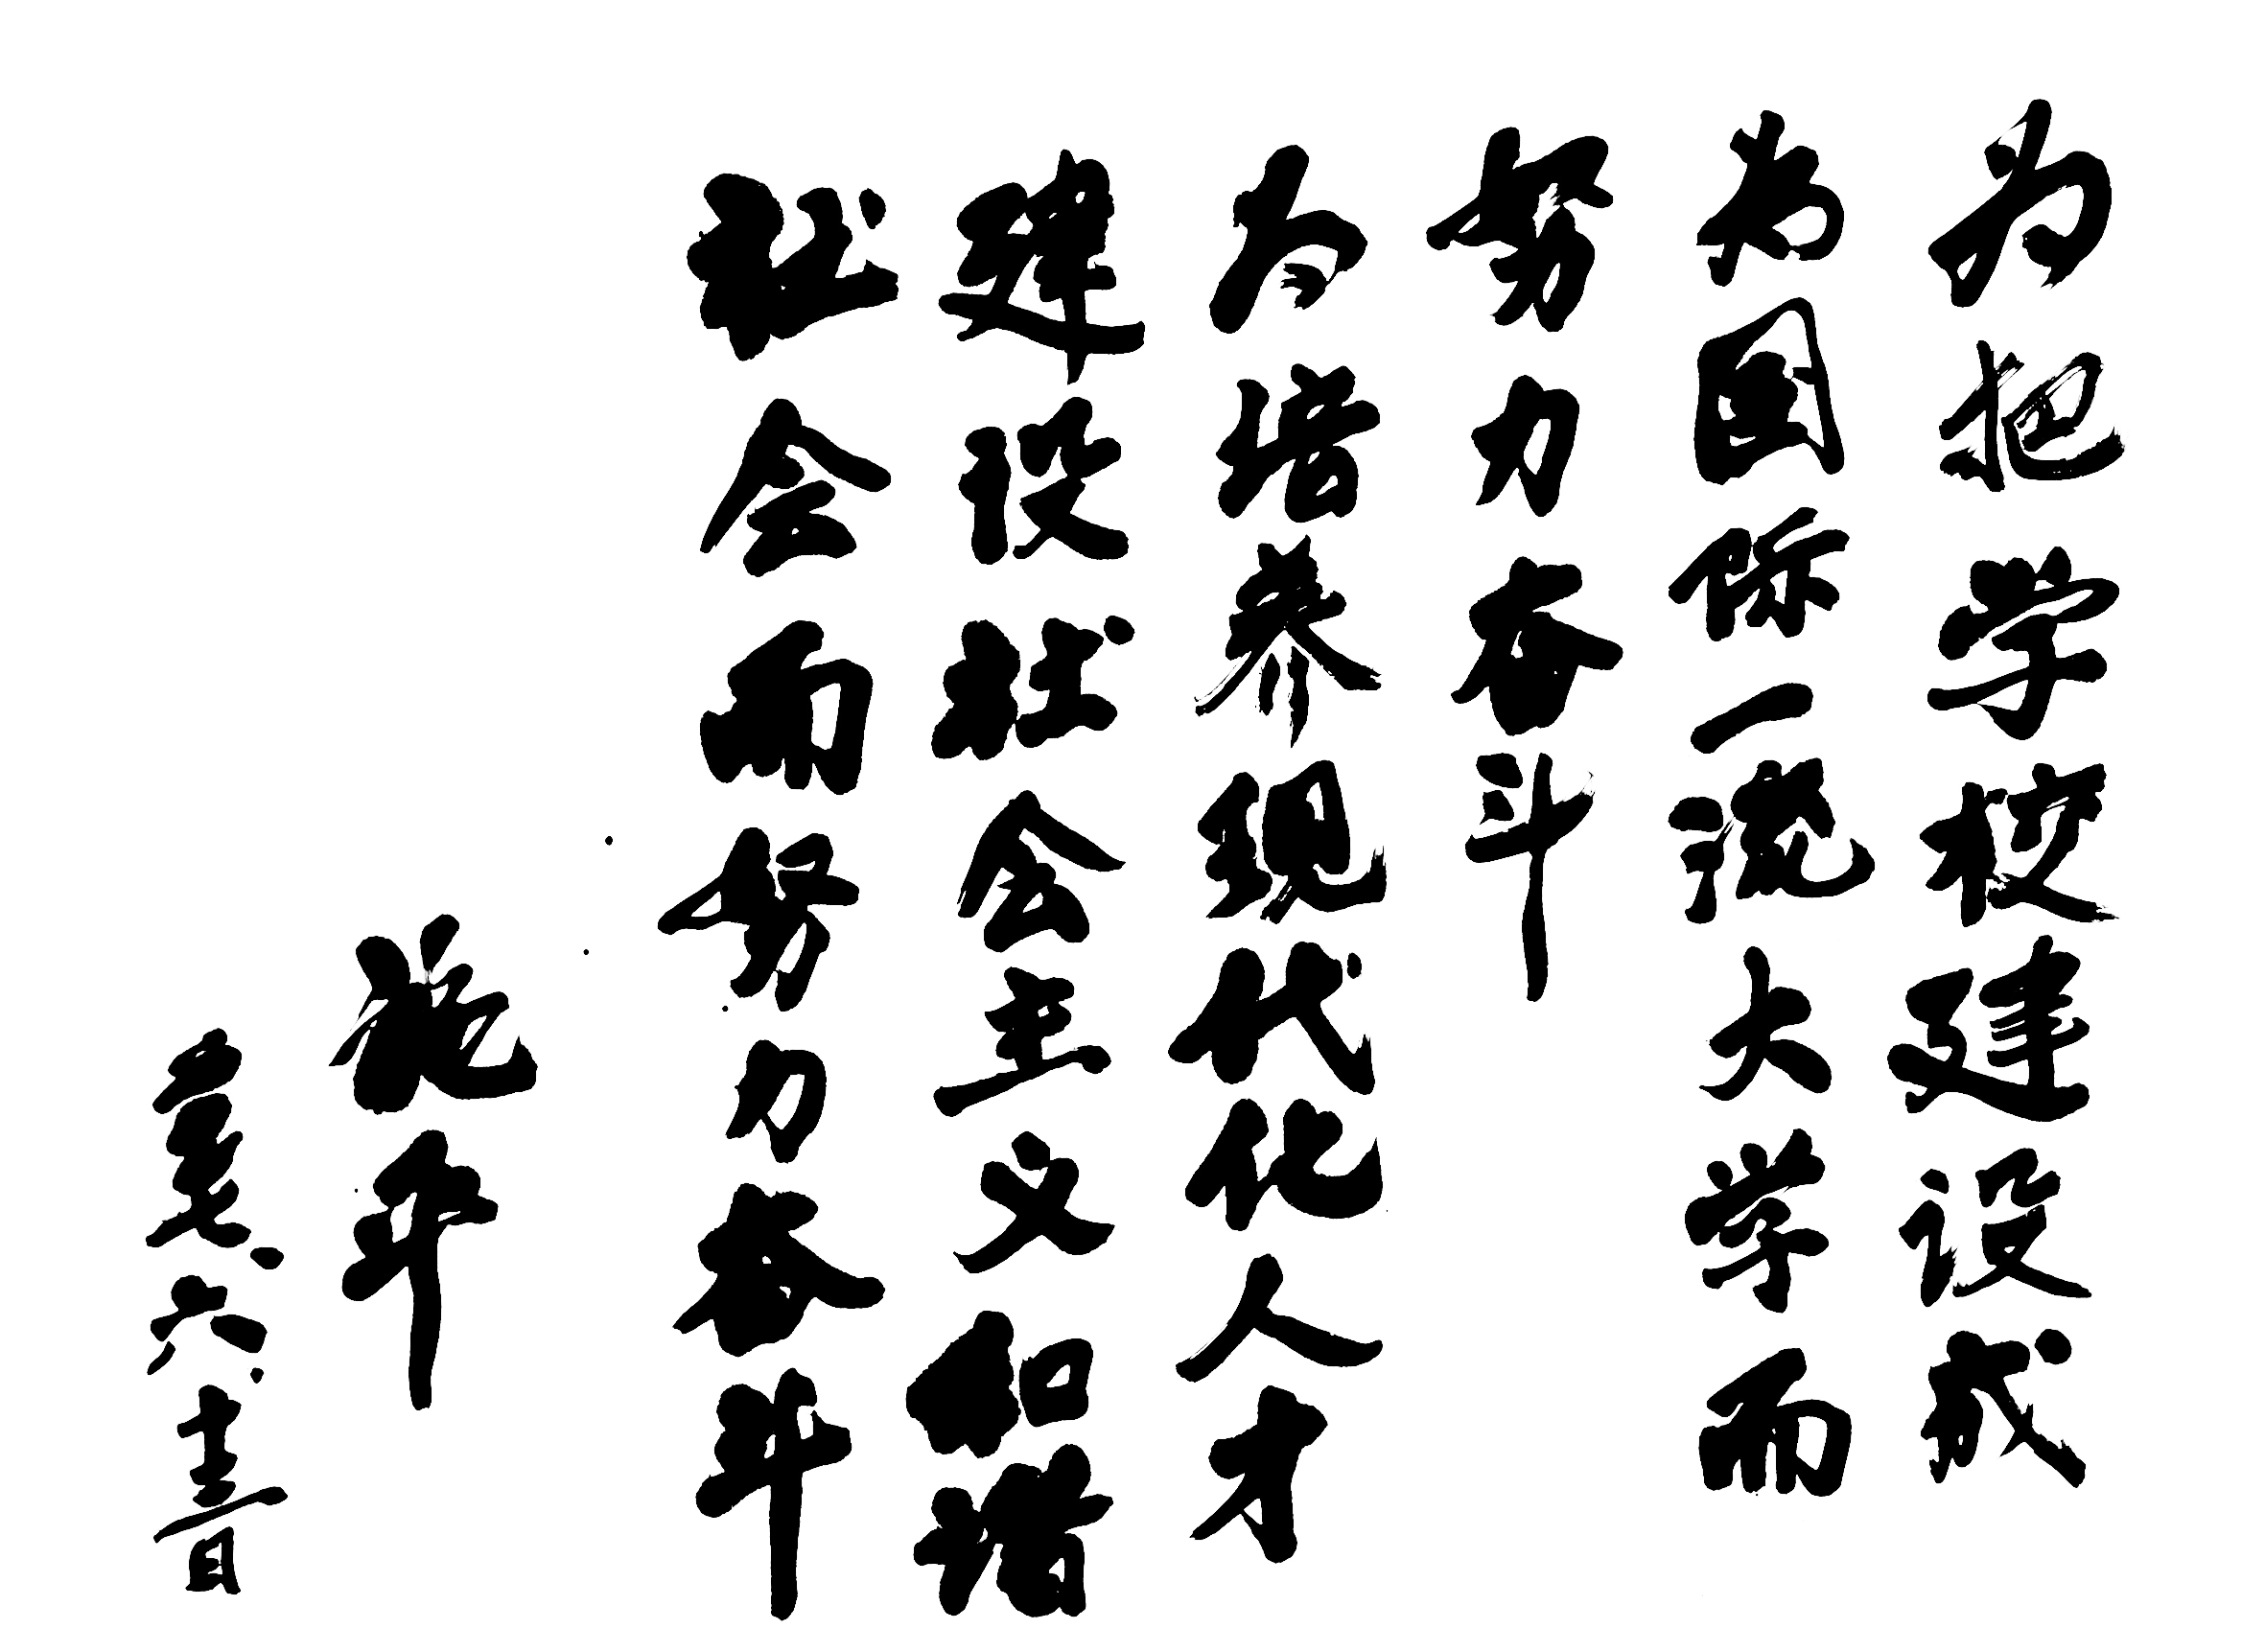 为把学校建设成
为国际一流大学而
努力奋斗
为培养现代化人才
建设社会主义和谐
社会而努力奋斗
施平
六